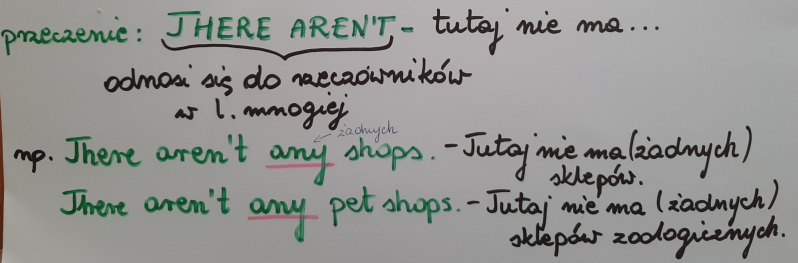 przeczenie: THERE AREN'T - tutaj nie ma...
odnosi się do rzeczowników
w l. mnogiej
żadnych
np. There aren't any shops. - Tutaj nie ma (żadnych)
sklepów.
There aren't any pet shops. - Tutaj nie ma (żadnych)
sklepów zoologicznych.